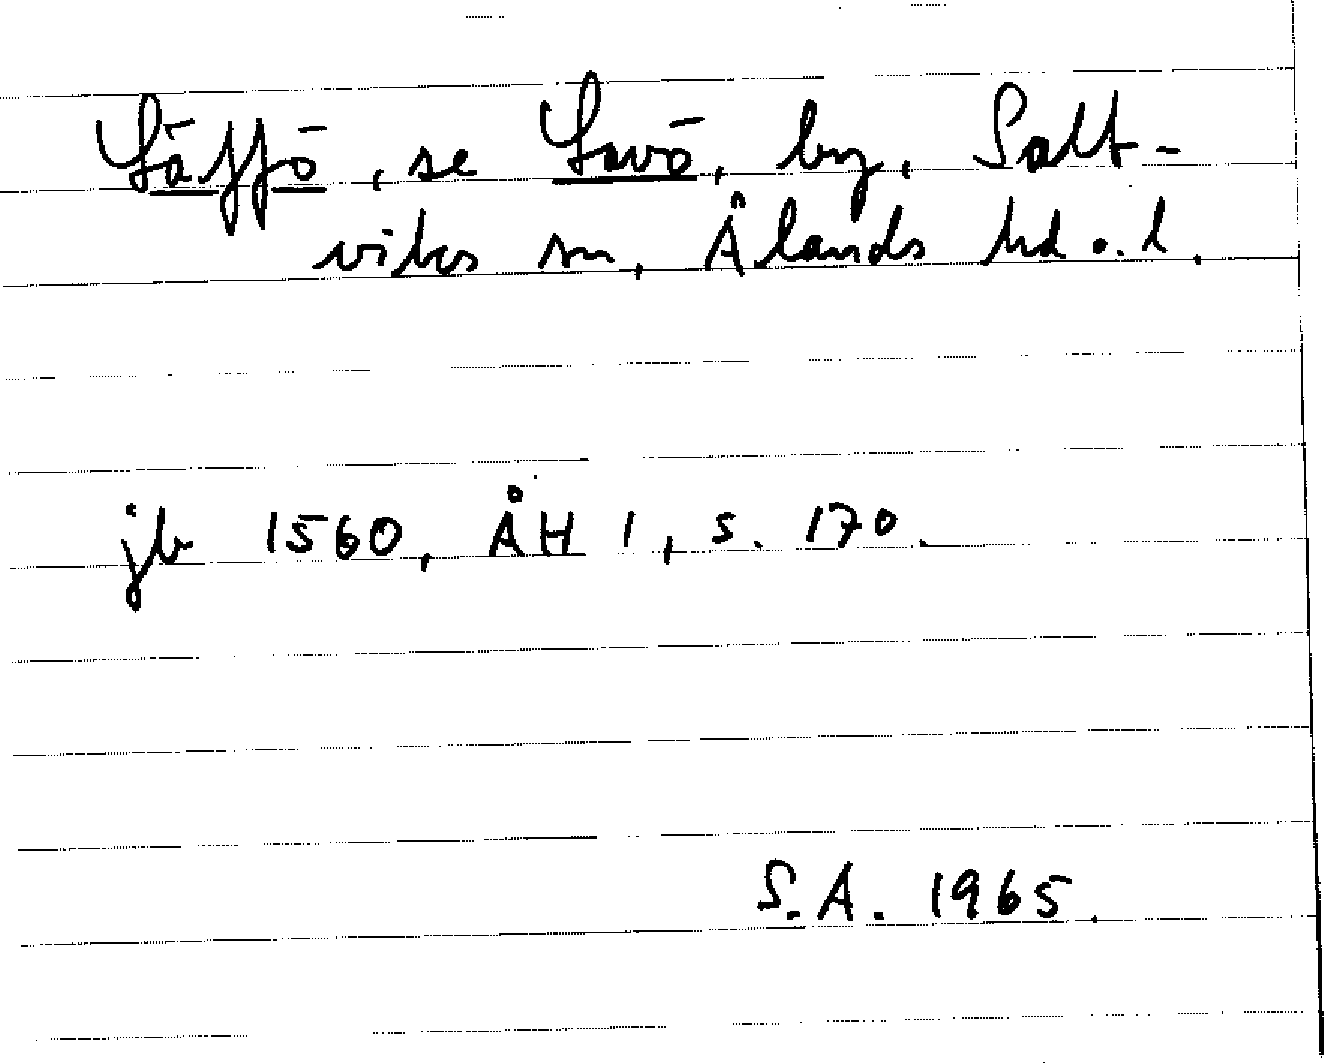 Läffö, se Lavö, by, Salt-
viks sn, Ålands hd o. l.
jb 1560, ÅH 1, s. 170.
S.A. 1965.